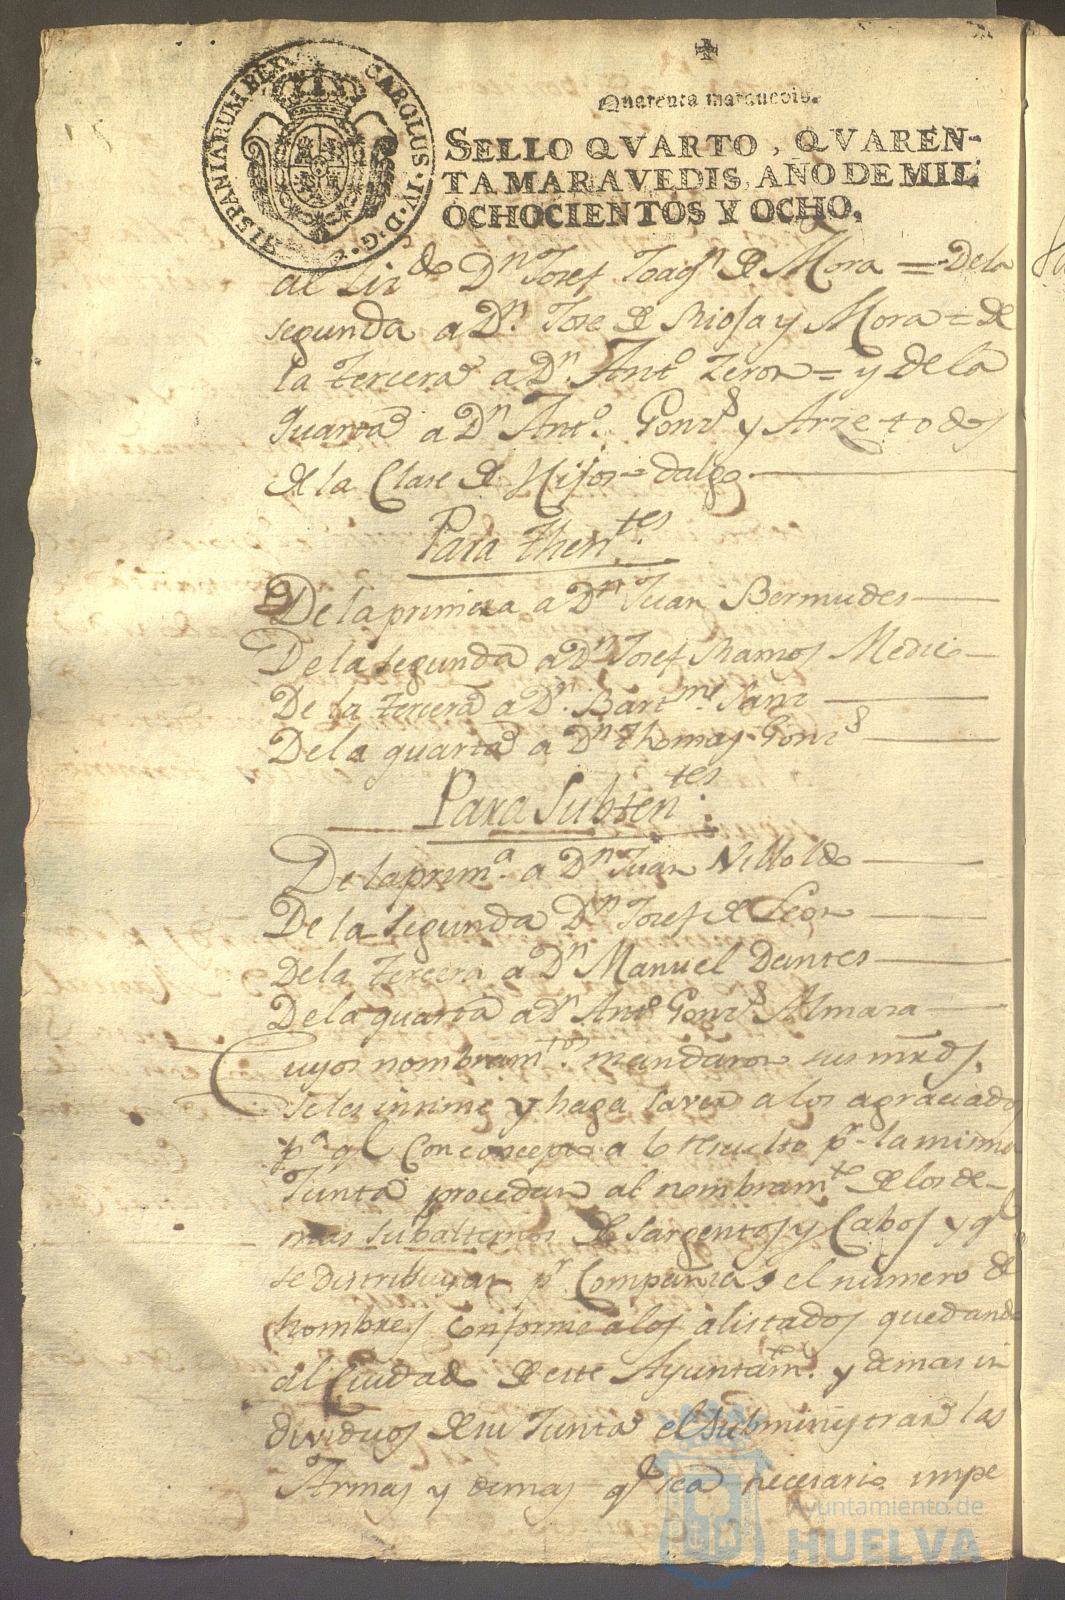 HISPANIARUM REX CAROLUS·IV·D·G·
Quarenta maravedis.
SELLO QVARTO, QVAREN-
TA MARAVEDIS, AÑO DE MIL
OCHOCIENTOS Y OCHO.
al Liz.do Dn Josef Joaqn de Mora = De la
segunda a Dn. Jose de Rioja y Mora = de
la tercera a Dn. Anto Zeron = y de la
quarta a Dn Anto. Gonzs y Arze todos
de la Clase de Hijos=dalgo.
Para Thentes.
De la primera a Dn Juan Bermudes
De la segunda a Dn Josef Ramos Medic
De la tercera a Dn. Bartme Sanz
De la quarta a Dn Thomas Gonzs
Para Subtentes.
De la prema. a Dn Juan Villoldo
De la segunda Dn Josef de Leon
De la tercera a Dn Manuel Dantes
De la quarta a Dn Anto Gonzs Almara
Cuyos nombramtos. mandaron sus mrds.
se les intime y haga saver a los agraciados
pa. ql con concepto a lo resuelto pr. la misma
Junta procedan al nombramto de los de-
mas subalternos de Sargentos y Cabos y ql
se distribuyan pr Compañias el número de
hombres conforme a los alistados quedando
al Cuidado de este Ayuntamto. y demas in
dividuos de su Junta el subministrar las
Armas y demas ql sea necesario impe
Ayuntamiento de
HUELVA